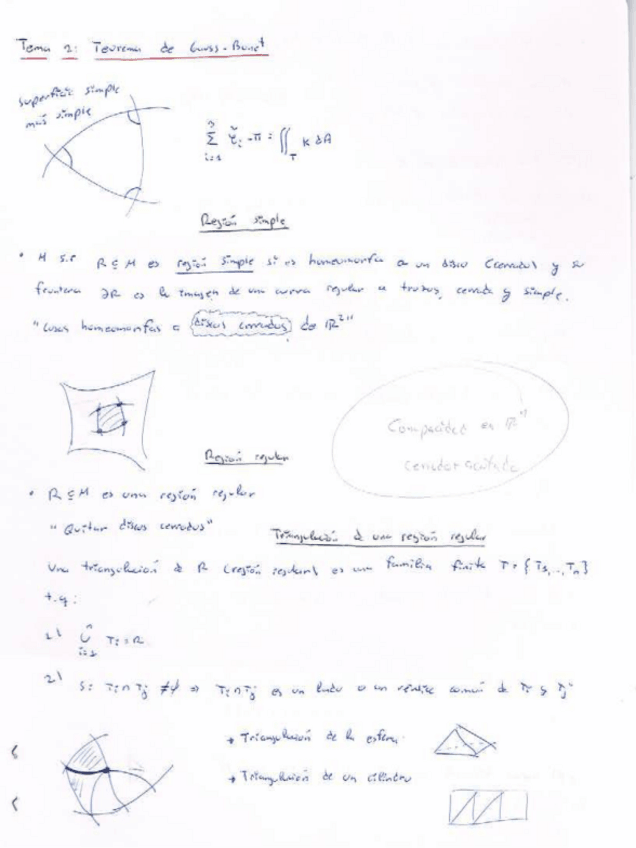 Tema 2: Teorema de Gauss-Bonet
superficie simple
más simple
Región simple
R ⊆ M es región simple si es homeomorfa a un disco (cerrado) y su
frontera ∂R es la imagen de una curva regular a trozos, cerrada y simple.
"Cosas homeomorfas a discos cerrados de ℝ²"
Compacidad en ℝⁿ
cerrado + acotado
Región regular
• R ⊆ M es una región regular
"Quitar discos cerrados"
Triangulación de una región regular
Una triangulación de R (región regular) es una familia finita T = {T₁,..,Tₙ}
t.q:
1) ⋃ᵢ₌₁ⁿ Tᵢ = R
2) Si Tᵢ ∩ Tⱼ ≠ ∅ ⇒ Tᵢ ∩ Tⱼ es un lado o un vértice común de Tᵢ y Tⱼ
→ Triangulación de la esfera
→ Triangulación de un cilindro